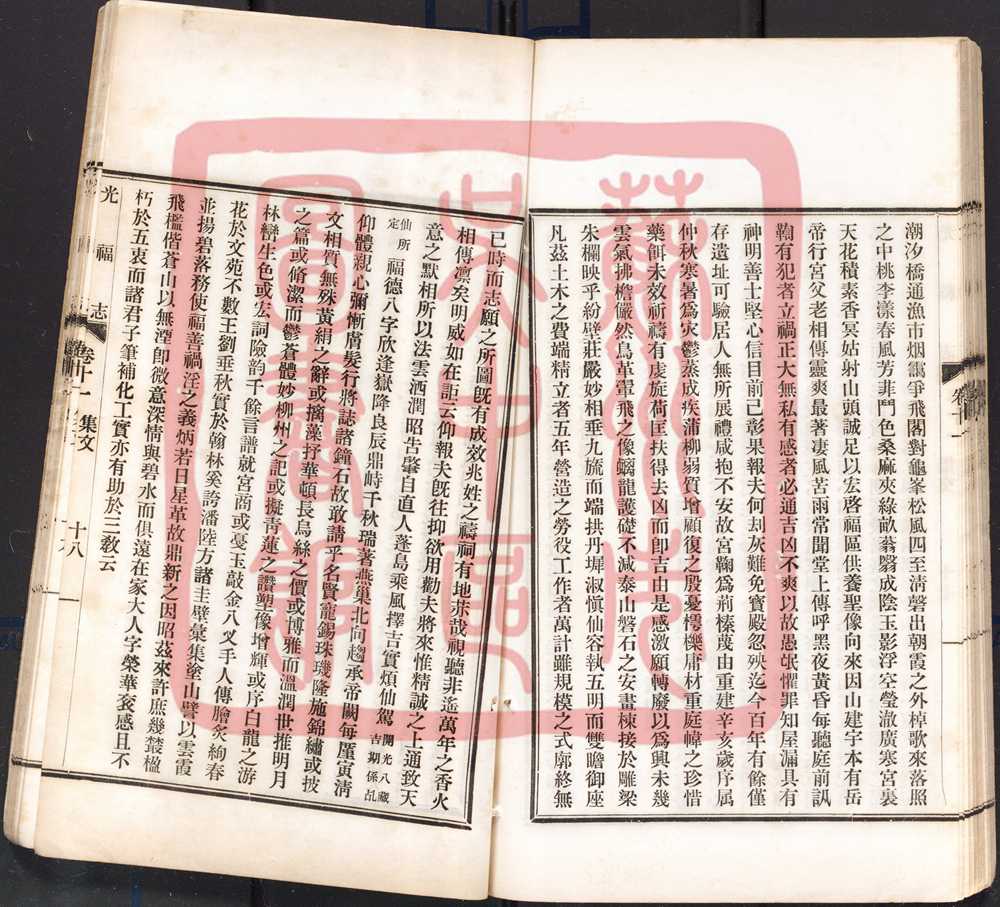 潮汐橋通漁市烟靄爭飛閣對龜峯松風四至清磬出朝霞之外棹歌來落照
之中桃李漾春風芳菲鬥色桑麻夾綠畝蓊翳成陰玉影浮空瑩澈廣寒宮裏
天花積素香冥姑射山頭誠足以宏啓福區供養聖像向來因山建宇本有岳
帝行宮父老相傳靈爽最著凄風苦雨常聞堂上傳呼黑夜黃昏每聽庭前訊
鞫有犯者立禍正大無私有感者必通吉凶不爽以故愚氓懼罪知屋漏具有
神明善士堅心信目前已彰果報夫何刦灰難免寳殿忽殃迄今百年有餘僅
存遺址可驗居人無所展禮咸抱不安故宮鞫爲荊榛蔑由重建辛亥歲序属
仲秋寒暑爲灾鬱蒸成疾蒲柳弱質增顧復之殷憂樗櫟庸材重庭幃之珍惜
藥餌未效祈禱有虔旋荷匡扶得去凶而卽吉由是感激願轉廢以爲興未幾
雲氣拂檐儼然鳥革翬飛之像蟠龍護礎不減泰山磐石之安畫棟接於雕梁
朱欄映乎紛壁莊嚴妙相垂九旒而端拱丹墀淑愼仙容執五明而雙瞻御座
凡玆土木之費端精立者五年營造之勞役工作者萬計雖規模之式廓終無
已時而志願之所圖旣有成效兆姓之禱祠有地赤哉視聽非遙萬年之香火
相傳凛矣明威如在詎云仰報夫旣往抑欲用勸夫將來惟精誠之上通致天
意之默相所以法雲洒潤昭告肇自直人蓬島乘風擇吉實煩仙駕開光八藏吉期係乩
仙所定福德八字欣逢嶽降良辰鼎峙千秋瑞著燕巢北向趨承帝闕每厪寅清
仰體親心彌慚膚髮行將誌諸鐘石故敢請乎名賢龍錫珠璣隆施錦繡或披
文相質無殊黃絹之辭或摛藻抒華頓長烏絲之價或博雅而溫潤世推明月
之篇或脩潔而鬱蒼體妙柳州之記或擬青蓮之讚塑像增輝或序白龍之游
林巒生色或宏詞險韵千餘言譜就宮商或戞玉敲金八叉手人傳膾炙絢春
花於文苑不數王劉垂秋實於翰林奚誇潘陸方諸圭璧彙集塗山譬以雲霞
並揚碧落務使福善禍淫之義炳若日星革故鼎新之因昭玆來許庶幾叢楹
飛檻偕蒼山以無湮卽微意深情與碧水而俱遠在家大人字榮華衮感且不
朽於五衷而諸君子筆補化工實亦有助於三敎云
光福志 卷十一 集文 十八
卷十一